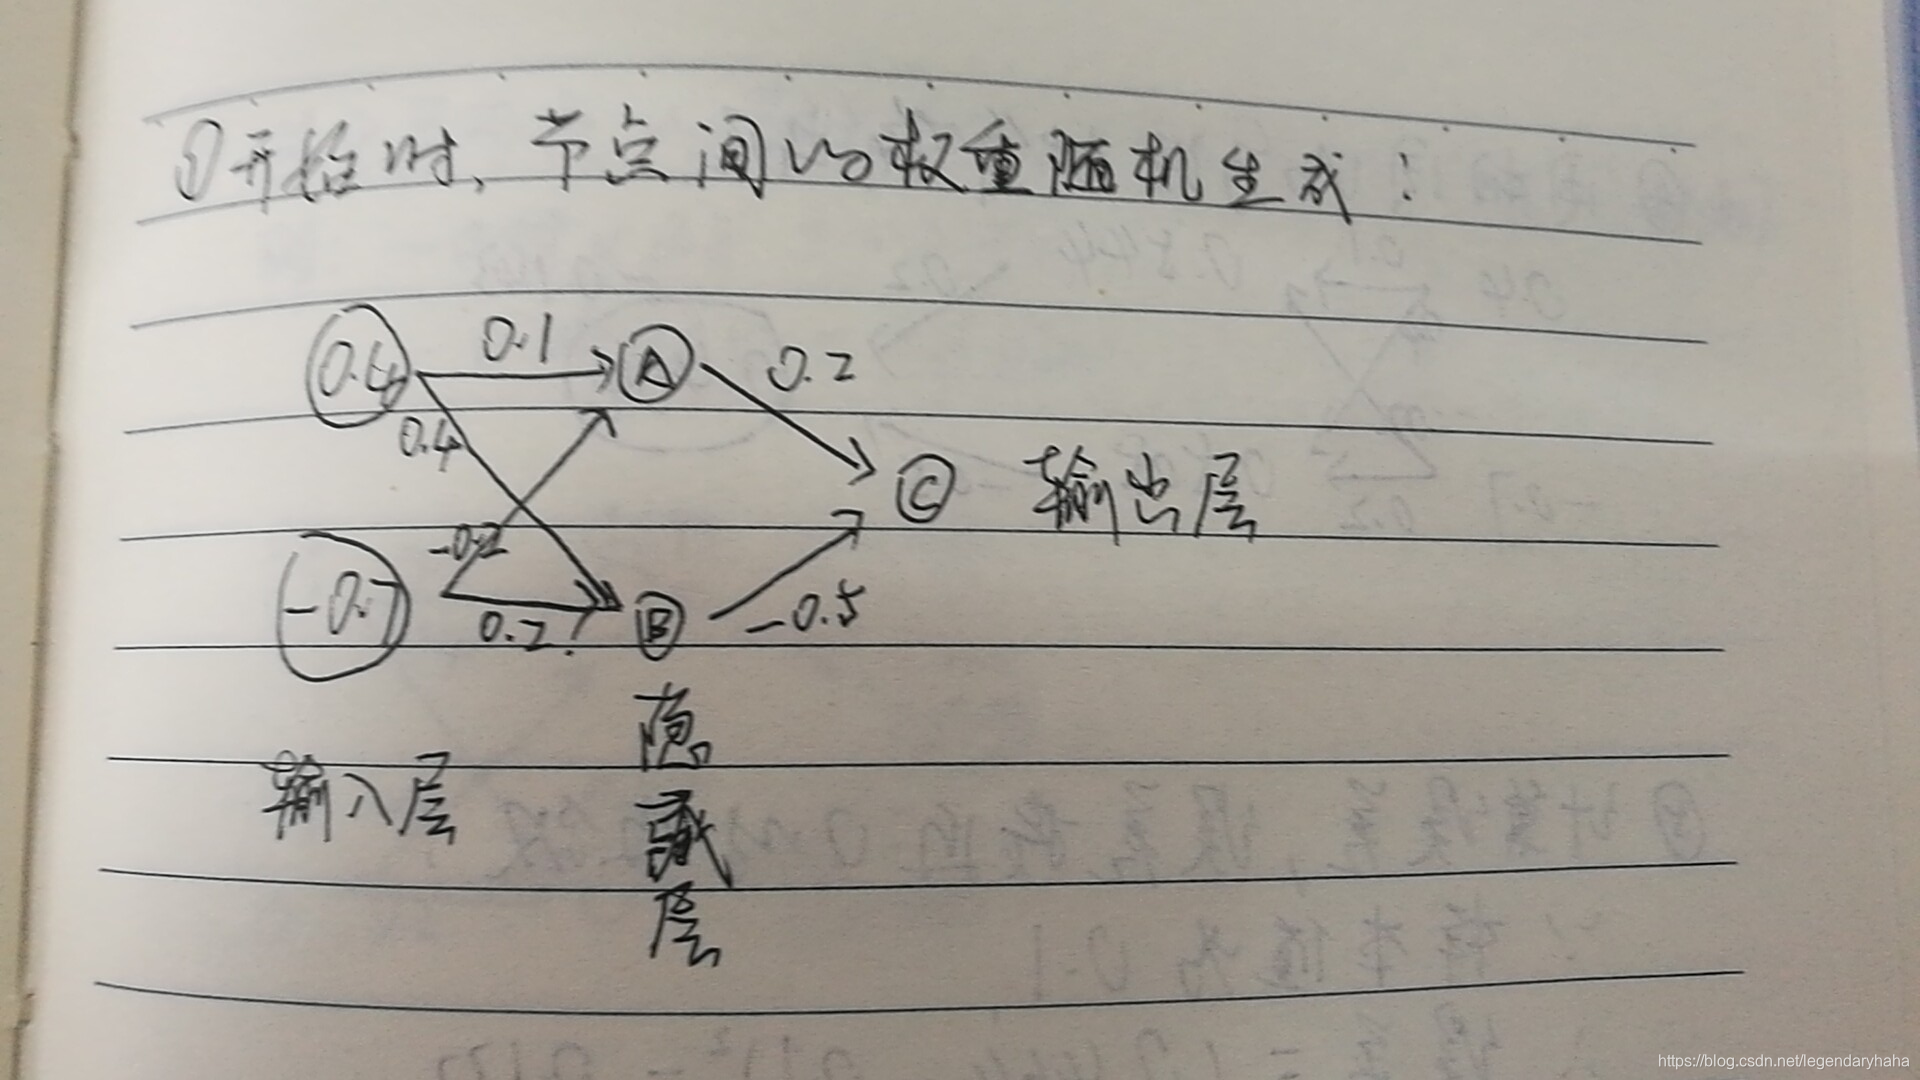 ①开始时、节点间的权重随机生成：
0.4 0.1 A 0.2
0.4
C 输出层
-0.2
-0.7 0.2 B -0.5
隐
藏
层
输入层
https://blog.csdn.net/legendaryhaha